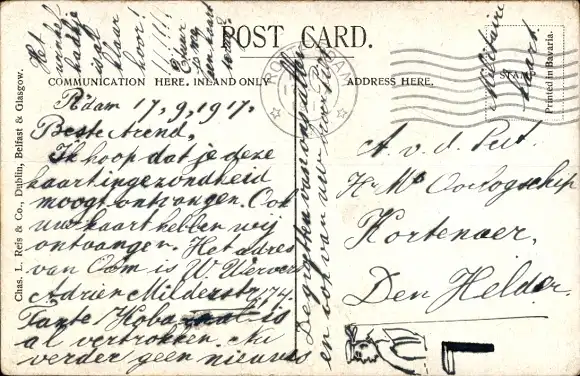 POST CARD.
COMMUNICATION HERE, INLAND ONLY
ADDRESS HERE.
STAMP
Printed in Bavaria.
Chas. L. Reis & Co., Dublin, Belfast & Glasgow.
ROTTERDAM
Militaire
kaart
Het
is al
klaar
hoor!
!!!!!
R'dam 17, 9, 1917.
Beste Arend,
Ik hoop dat je deze
kaart in gezondheid
moogt ontvangen. Ook
uw kaart hebben wij
ontvangen. Het adres
van Oom is W
Adrien Milderstr
Tante Koba is
al vertrokken. Nu
verder geen nieuws
De groeten van ons allen
en ook van uw
A. v. d.
Hr Ms Oorlogschip
Kortenaer,
Den Helder.